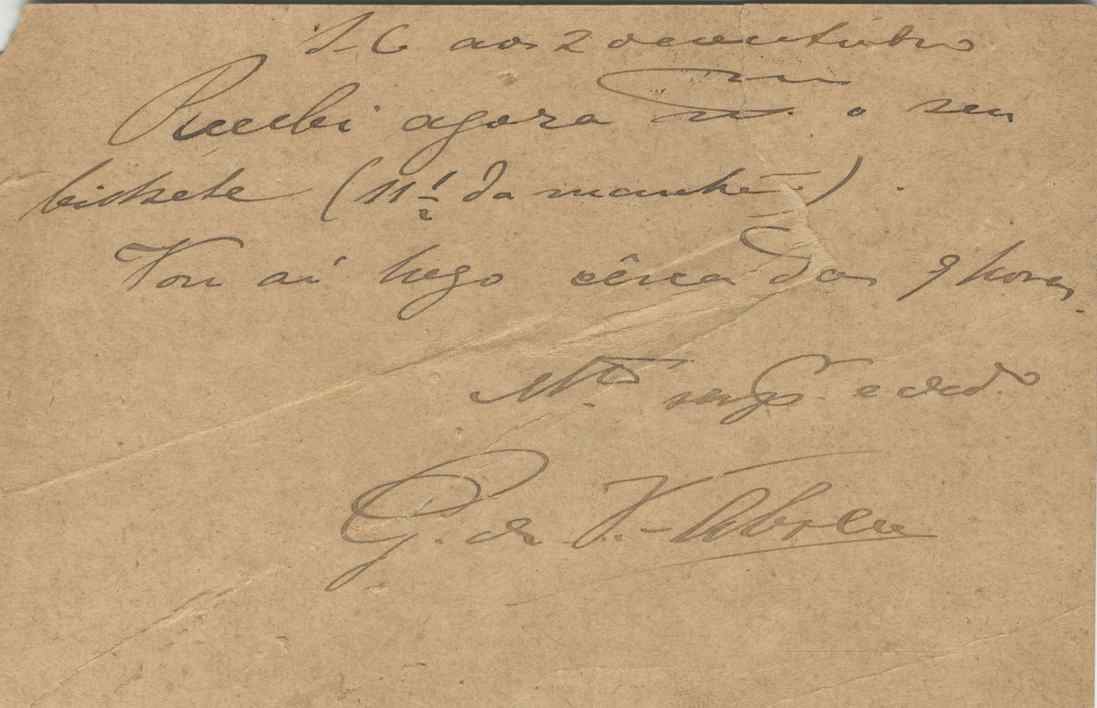 S-C aos 2 de outubro
Recebi agora m.mo o seu
bilhete (11 1/2 da manhã).
Vou aí logo cêrca das 9 horas.
M.to e ded.o
G. de V.-Abreu